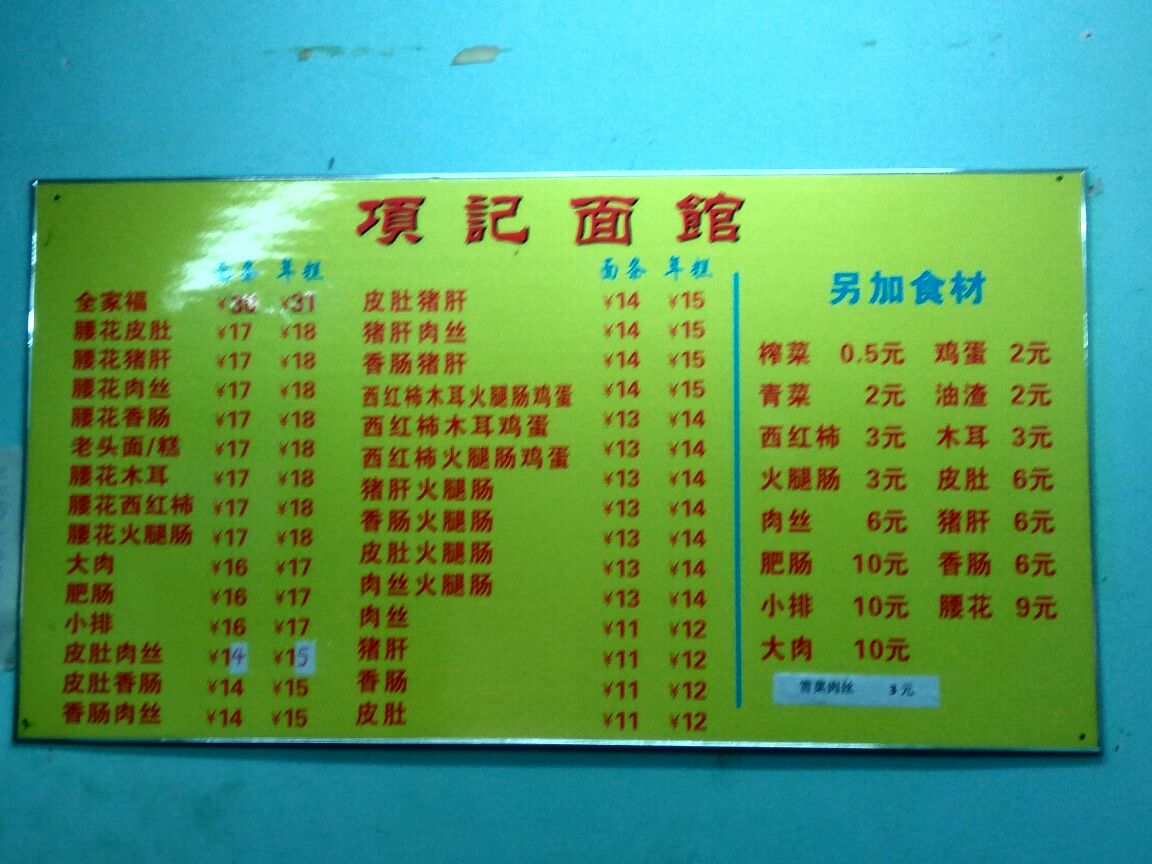 項記面館
面条 年糕
全家福 ¥30 ¥31
腰花皮肚 ¥17 ¥18
腰花猪肝 ¥17 ¥18
腰花肉丝 ¥17 ¥18
腰花香肠 ¥17 ¥18
老头面/糕 ¥17 ¥18
腰花木耳 ¥17 ¥18
腰花西红柿 ¥17 ¥18
腰花火腿肠 ¥17 ¥18
大肉 ¥16 ¥17
肥肠 ¥16 ¥17
小排 ¥16 ¥17
皮肚肉丝 ¥14 ¥15
皮肚香肠 ¥14 ¥15
香肠肉丝 ¥14 ¥15
面条 年糕
皮肚猪肝 ¥14 ¥15
猪肝肉丝 ¥14 ¥15
香肠猪肝 ¥14 ¥15
西红柿木耳火腿肠鸡蛋 ¥14 ¥15
西红柿木耳鸡蛋 ¥13 ¥14
西红柿火腿肠鸡蛋 ¥13 ¥14
猪肝火腿肠 ¥13 ¥14
香肠火腿肠 ¥13 ¥14
皮肚火腿肠 ¥13 ¥14
肉丝火腿肠 ¥13 ¥14
¥13 ¥14
肉丝 ¥11 ¥12
猪肝 ¥11 ¥12
香肠 ¥11 ¥12
皮肚 ¥11 ¥12
另加食材
榨菜 0.5元 鸡蛋 2元
青菜 2元 油渣 2元
西红柿 3元 木耳 3元
火腿肠 3元 皮肚 6元
肉丝 6元 猪肝 6元
肥肠 10元 香肠 6元
小排 10元 腰花 9元
大肉 10元
3元